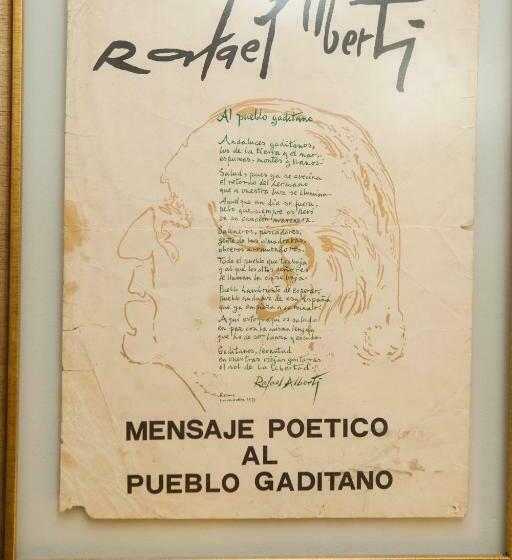 Rafael Alberti
Al pueblo gaditano
Andaluces gaditanos,
los de la tierra y el mar,
espumas, montes y llanos.
Salud, pues ya se avecina
el retorno del hermano
que a vuestra luz se ilumina.
Aquel que un día se fuera,
pero que siempre os llevó
en su canción marinera.
Salineros, pescadores,
gente de las almadrabas,
obreros armadores.
Todo el pueblo que trabaja
y al que los altos señores
le llaman la clase baja.
Pueblo hambriento de esperar,
pueblo andaluz de esa España
que ya empieza a caminar.
Aquí estoy, aquí os saludo
en paz con la misma lengua
que ha de ser lanza y escudo.
Gaditanos, levantad
en vuestras viejas guitarras
el sol de la libertad.
Rafael Alberti
Roma
primavera
MENSAJE POETICO
AL
PUEBLO GADITANO